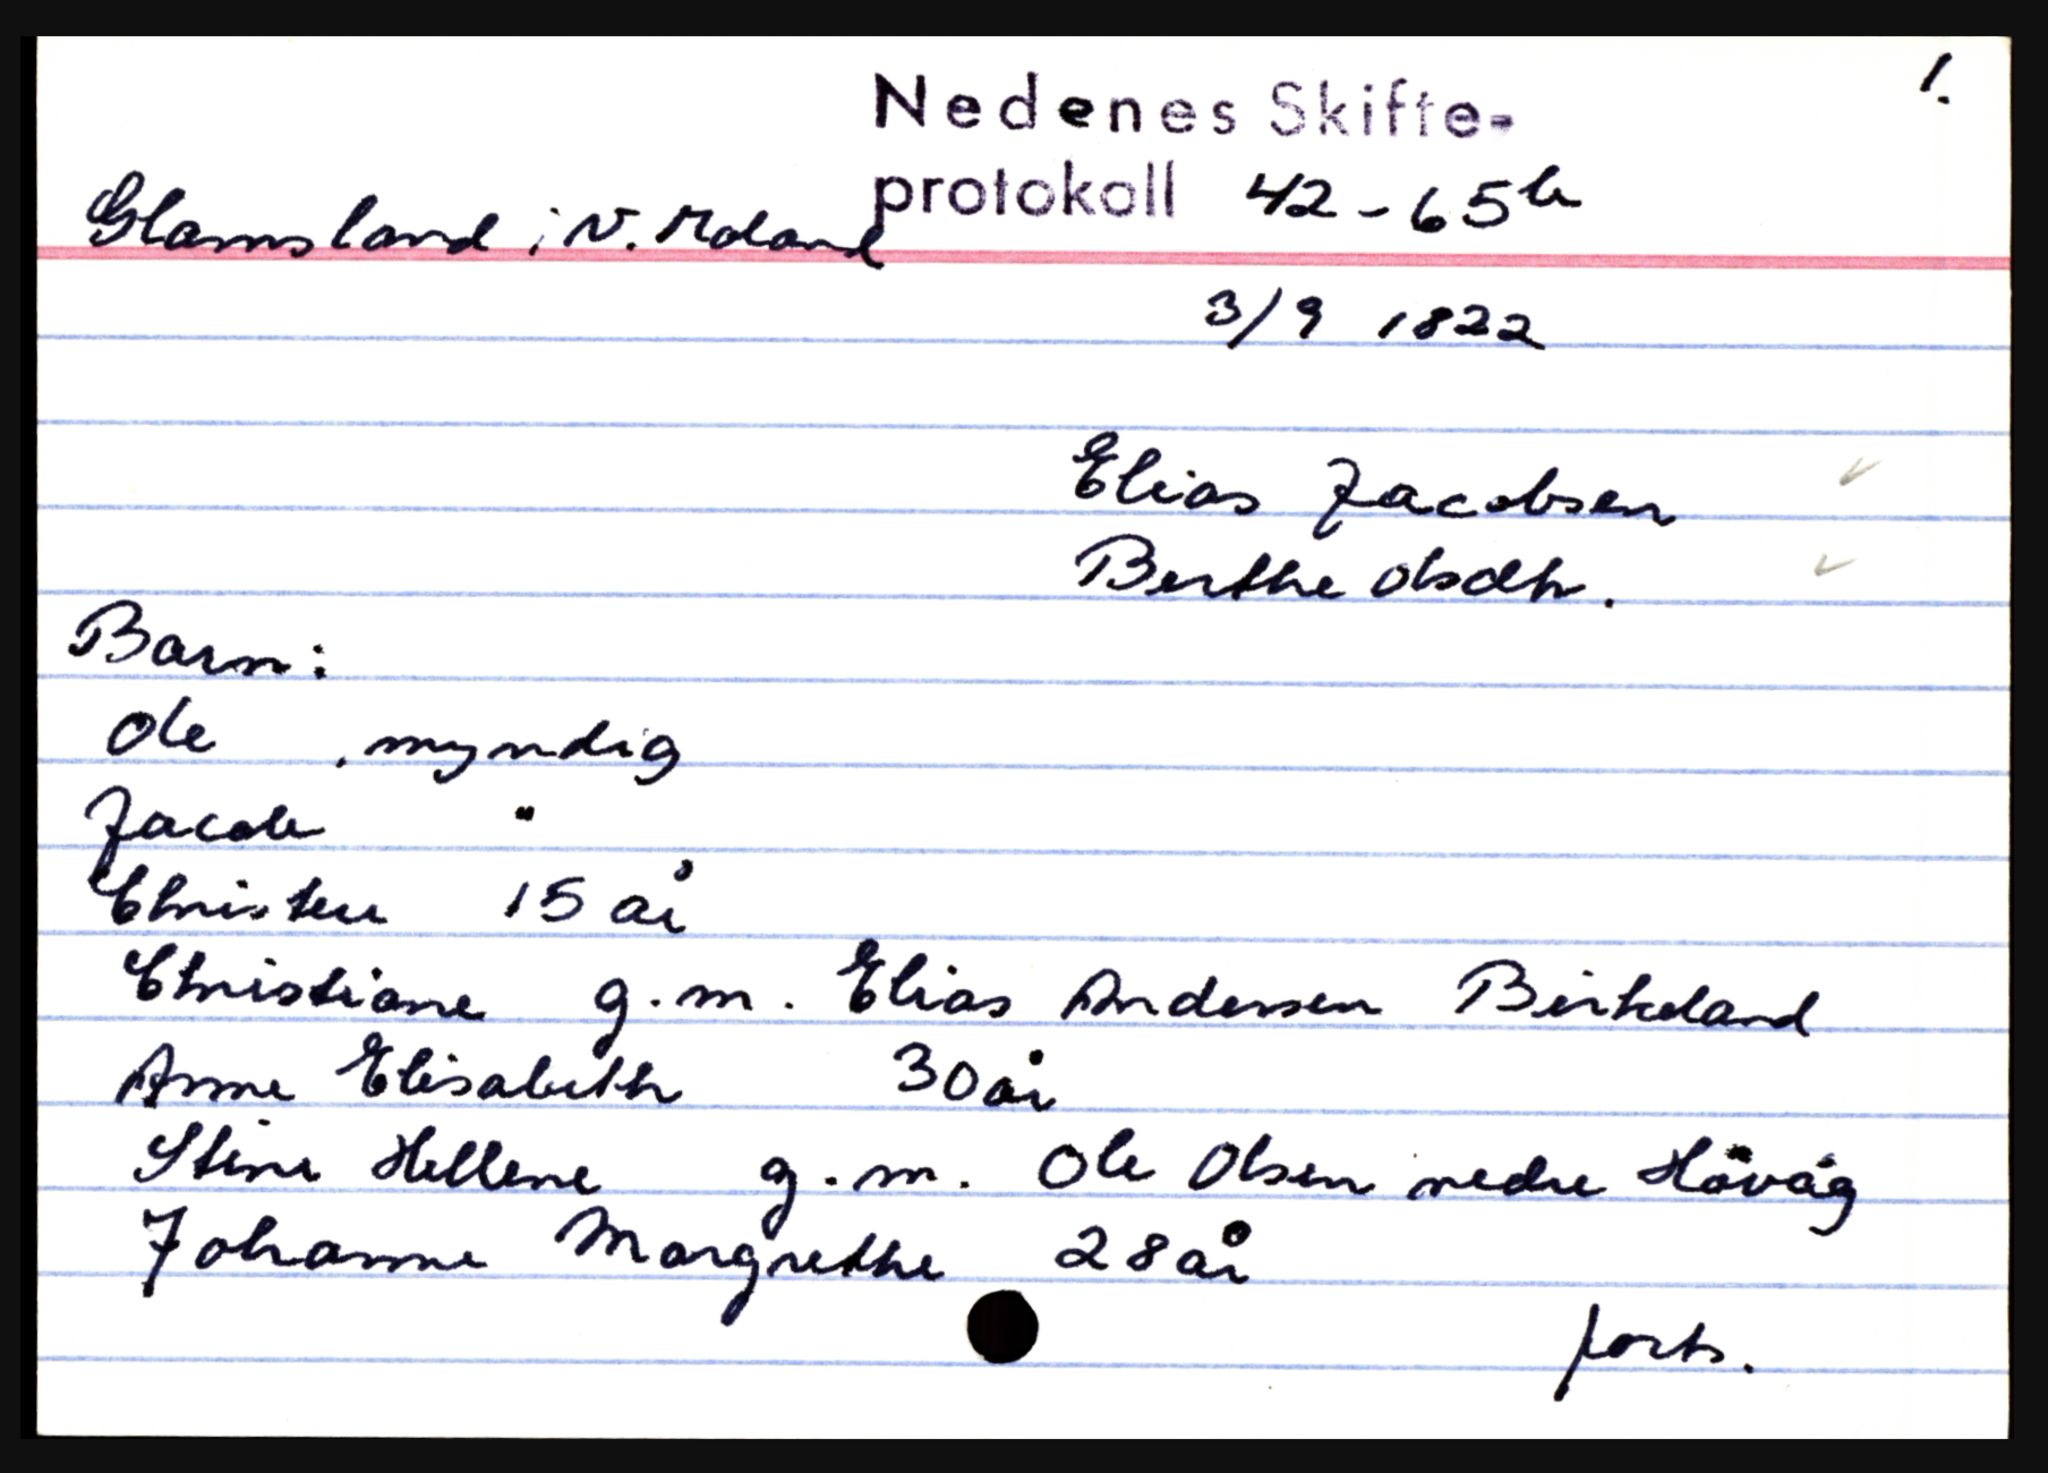 1.
Nedenes Skifte-
protokoll 42-65b
Glamsland i V. Moland
3/9 1822
Elias Jacobsen ✓
Berthe Olsdtr. ✓
Barn:
Ole , myndig
Jacob "
Christen 15 år
Christiane g.m. Elias Andersen Birkeland
Anne Elisabeth 30 år
Stine Hellene g.m. Ole Olsen nedre Hövåg
Johanne Margrethe 28 år
forts.